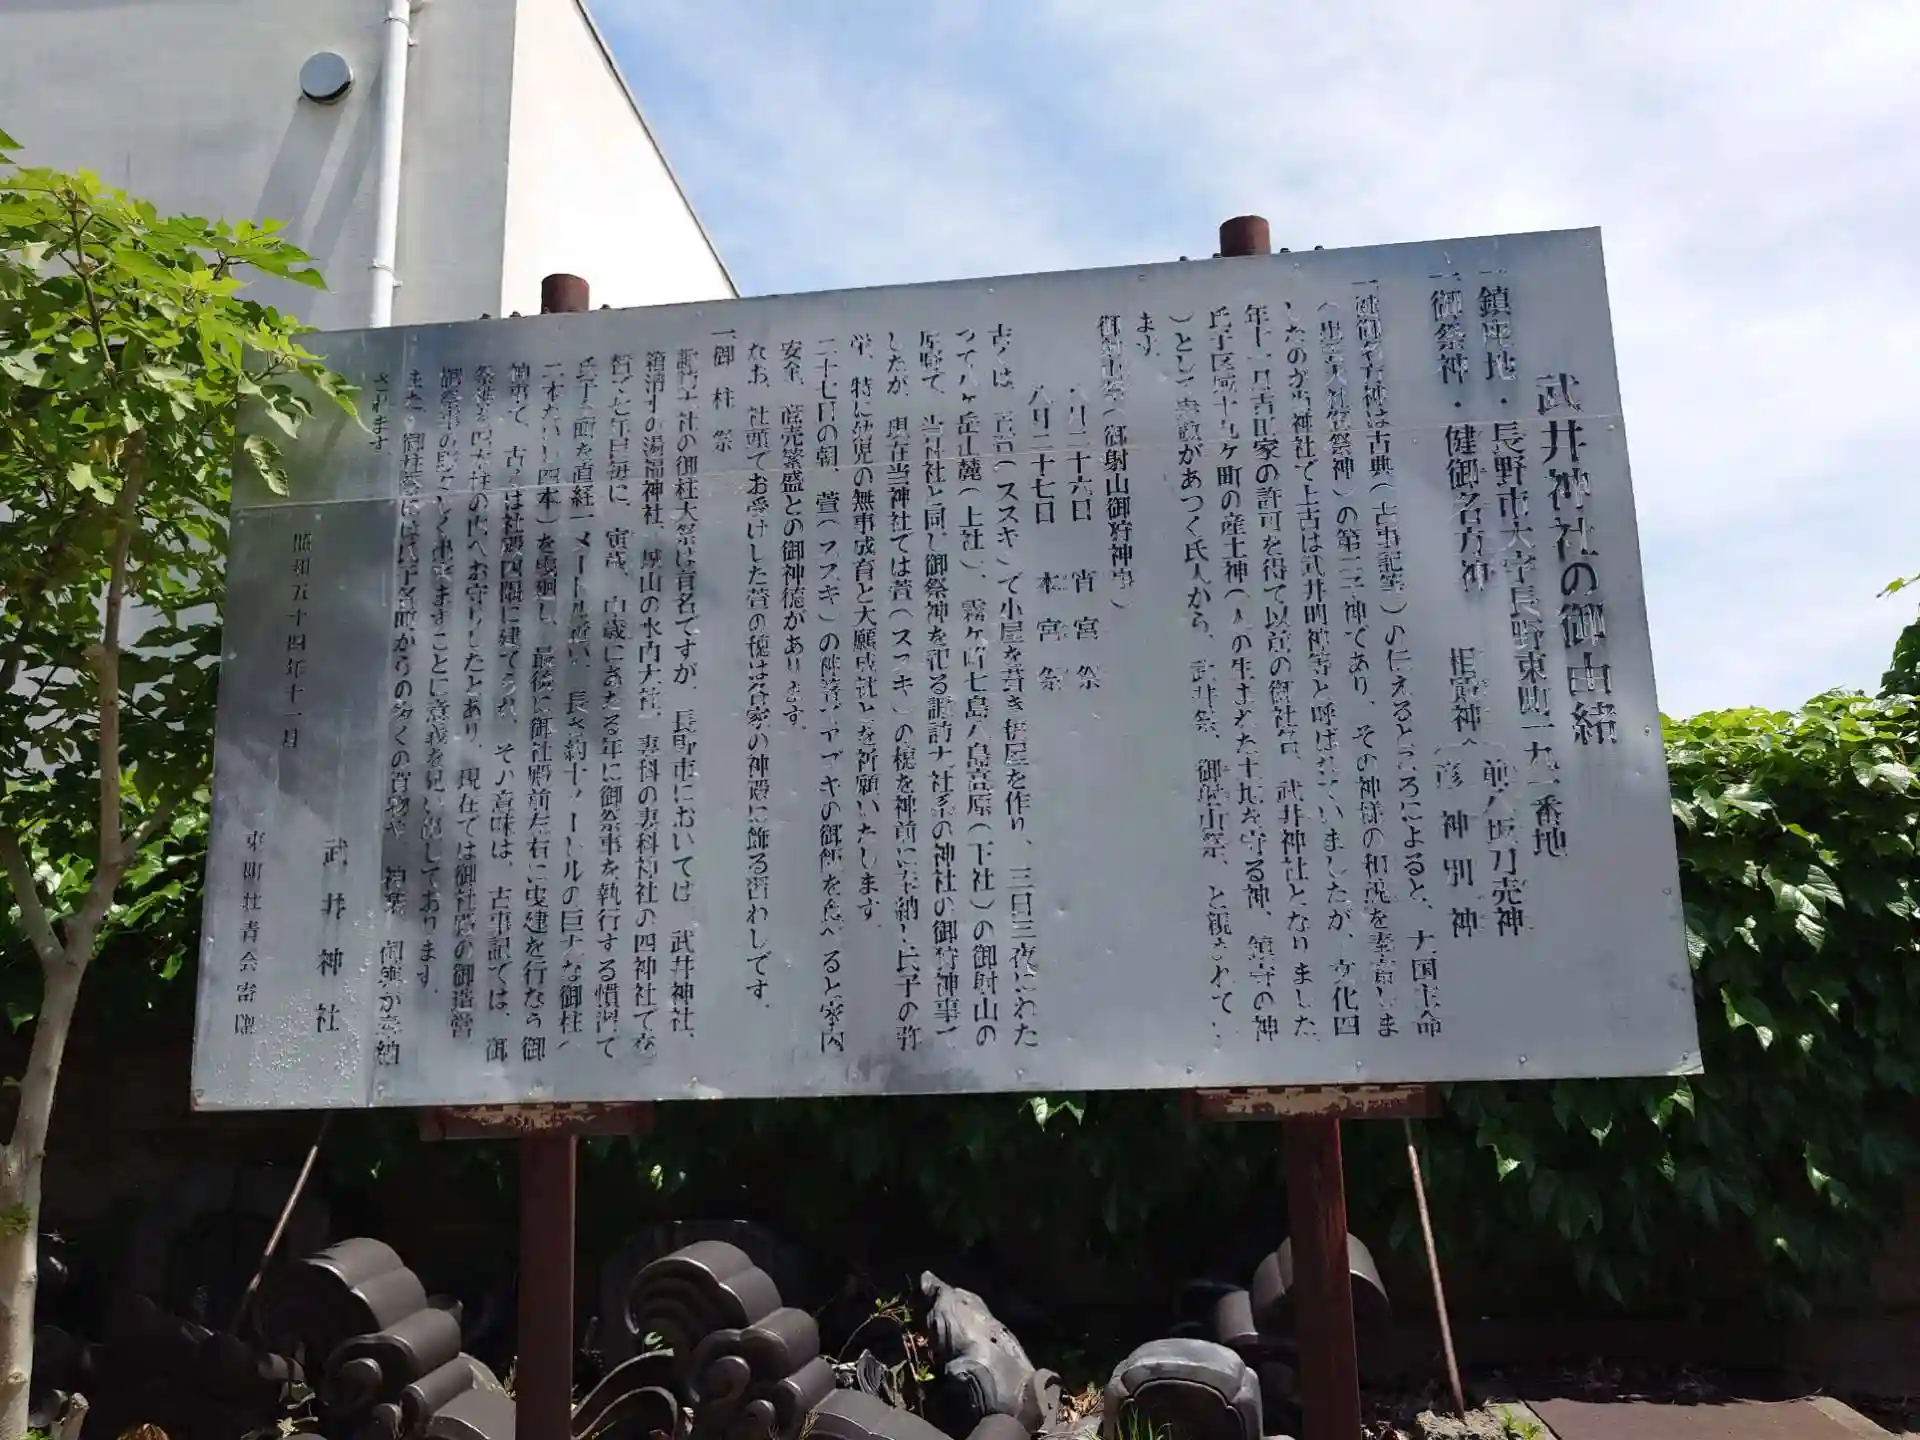 武井神社の御由緒
一鎮座地・長野市大字長野東町一九一番地
一御祭神・健御名方神 相殿神 前八坂刀売神
彦神別神
健御名方神は古典(古事記等)の伝えるところによると、大国主命
(出雲大社御祭神)の第二三神であり、その神様の和魂を奉斎しま
したのが当神社で上古は武井明神等と呼ばれていましたが、文化四
年十一月吉田家の許可を得て以前の御社名、武井神社となりました
氏子区域十九ヶ町の産土神(人の生まれた土地を守る神、鎮守の神
)として崇敬があつく氏人から、武井祭、御射山祭、と親まれてい
ます。
御射山祭(御射山御狩神事)
八月二十六日 宵宮祭
八月二十七日 本宮祭
古くは、青萱(ススキ)で小屋を葺き穂屋を作り、三日三夜にわた
つて八ヶ岳山麓(上社)、霧ヶ峰七島八島高原(下社)の御射山の
原野で、当神社と同じ御祭神を祀る諏訪大社系の神社の御狩神事で
したが、現在当神社では萱(ススキ)の穂を神前に奉納し氏子の弥
栄、特に幼児の無事成育と大願成社とを祈願いたします。
二十七日の朝、萱(ススキ)の穂箸でアズキの御飯を食べると家内
安全、商売繁盛との御神徳があります。
なお、社頭でお受けした萱の穂は各家の神殿に飾る習わしです。
一御柱祭
諏訪大社の御柱大祭は有名ですが、長野市においては、武井神社、
箱清水の湯福神社、城山の水内大社、妻科の妻科神社の四神社で交
替で七年目毎に、寅歳、申歳にあたる年に御祭事を執行する慣習で
氏子の町を直経一メートル近い、長さ約十メートルの巨大な御柱(
二本ないし四本)を曳廻し、最後に御社殿前左右に曳建を行なう御
神事で、古くは社殿四隅に建てられ、その意味は、古事記では、御
祭神を四本柱の内へお守りしたとあり、現在では御社殿の御造営
御祭事の賑々しく出来ますことに意義を見い出しております。
また、御柱祭には氏子各町からの多くの質物や、神楽、御輿が奉納
されます
昭和五十四年十一月
武井神社
東町壮青会寄贈